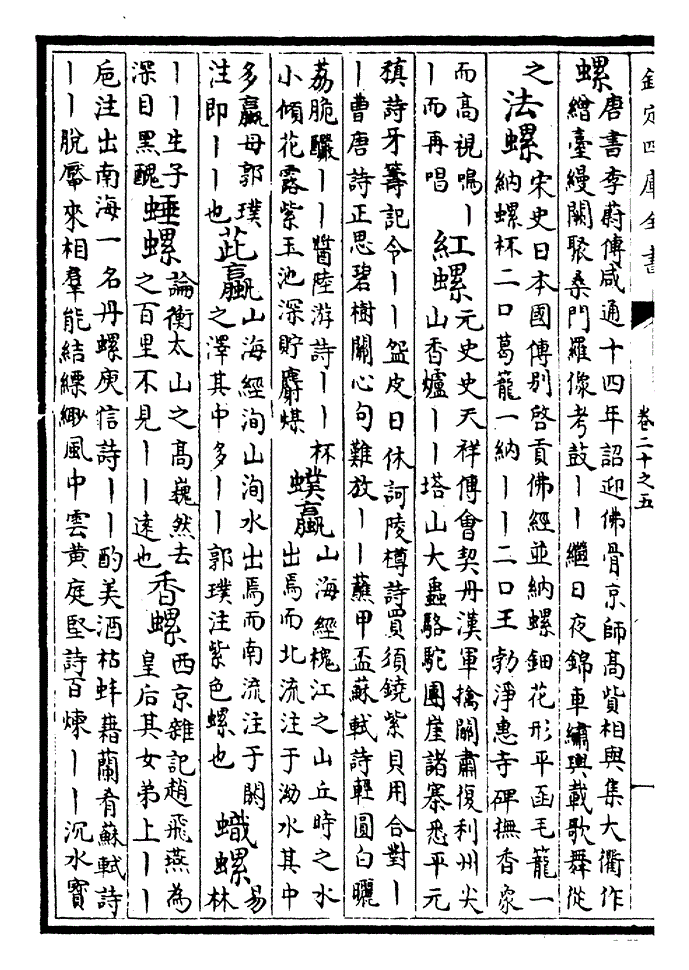 欽定四庫全書
卷二十之五
螺
唐書李蔚傳咸通十四年詔迎佛骨京師高貲相與集大衢作
繒臺縵闕聚桑門羅像考鼓丨丨繼日夜錦車繡輿載歌舞從
之
法螺
宋史日本國傳别啓貢佛經並納螺鈿花形平函毛籠一
納螺杯二口葛籠一納丨丨二口王勃淨惠寺碑撫香象
而高視鳴丨
丨而再唱
紅螺
元史史天祥傳會契丹漢軍擒關肅復利州尖
山香爐丨丨塔山大蟲駱駝團崖諸寨悉平元
稹詩牙籌記令丨丨盌皮日休訶陵樽詩買須鐃紫貝用合對丨
丨曹唐詩正思碧樹關心句難放丨丨蘸甲盃蘇軾詩輕圓白曬
荔脆釅丨丨醬陸游詩丨丨杯
小傾花露紫玉池深貯麝煤
䗱蠃
山海經槐江之山丘時之水
出焉而北流注于泑水其中
多蠃母郭璞
注即丨丨也
茈蠃
山海經洵山洵水出焉而南流注于閼
之澤其中多丨丨郭璞注紫色螺也
蟙螺
易
林
丨丨生子
深目黑醜
埵螺
論衡太山之高巍然去
之百里不見丨丨遠也
香螺
西京雜記趙飛燕為
皇后其女弟上丨丨
巵注出南海一名丹螺庾信詩丨丨酌美酒枯蚌藉蘭肴蘇軾詩
丨丨脫黶來相羣能結縹緲風中雲黄庭堅詩百煉丨丨沉水寳